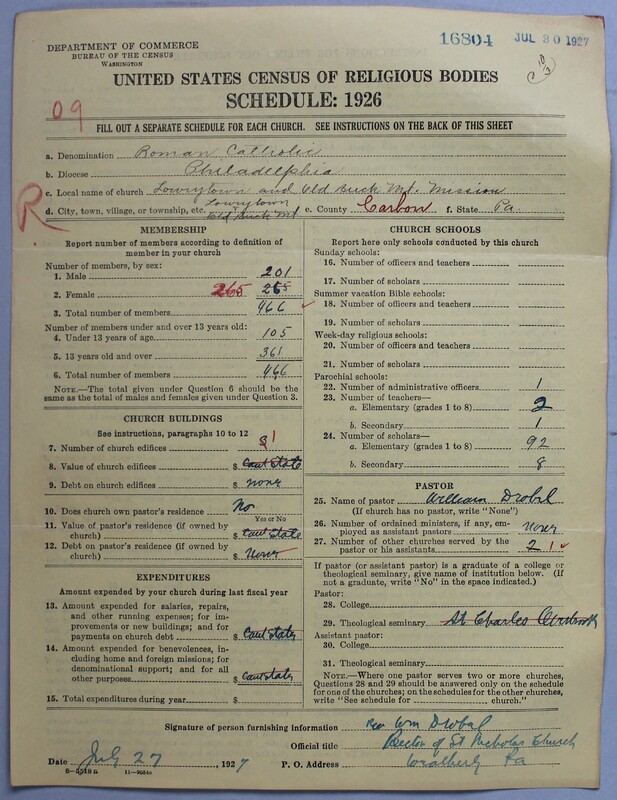 16804 JUL 30 1927
DEPARTMENT OF COMMERCE
BUREAU OF THE CENSUS
WASHINGTON
10/3
UNITED STATES CENSUS OF RELIGIOUS BODIES
SCHEDULE: 1926
09
FILL OUT A SEPARATE SCHEDULE FOR EACH CHURCH. SEE INSTRUCTIONS ON THE BACK OF THIS SHEET
a. Denomination Roman Catholic
b. Diocese Philadelphia
c. Local name of church Lowrytown and Old Buck Mt. Mission
R.
d. City, town, village, or township, etc. Lowrytown Old Buck Mt e. County Carbon f. State Pa.
MEMBERSHIP
Report number of members according to definition of
member in your church
Number of members, by sex:
1. Male 201
2. Female 265 265
3. Total number of members 466
Number of members under and over 13 years old:
4. Under 13 years of age 105
5. 13 years old and over 361
6. Total number of members 466
NOTE.—The total given under Question 6 should be
the same as the total of males and females given under Question 3.
CHURCH BUILDINGS
See instructions, paragraphs 10 to 12
7. Number of church edifices 1
8. Value of church edifices $ Cant State
9. Debt on church edifices $ none
10. Does church own pastor's residence No
Yes or No
11. Value of pastor's residence (if owned by
church) $ Cant State
12. Debt on pastor's residence (if owned by
church) $ None
EXPENDITURES
Amount expended by your church during last fiscal year
13. Amount expended for salaries, repairs,
and other running expenses; for im-
provements or new buildings; and for
payments on church debt $ Cant State
14. Amount expended for benevolences, in-
cluding home and foreign missions; for
denominational support; and for all
other purposes $ Cant State
15. Total expenditures during year $
CHURCH SCHOOLS
Report here only schools conducted by this church
Sunday schools:
16. Number of officers and teachers
17. Number of scholars
Summer vacation Bible schools:
18. Number of officers and teachers
19. Number of scholars
Week-day religious schools:
20. Number of officers and teachers
21. Number of scholars
Parochial schools:
22. Number of administrative officers 1
23. Number of teachers—
a. Elementary (grades 1 to 8) 2
b. Secondary 1
24. Number of scholars—
a. Elementary (grades 1 to 8) 92
b. Secondary 8
PASTOR
25. Name of pastor William Drobel
(If church has no pastor, write "None")
26. Number of ordained ministers, if any, em-
ployed as assistant pastors None
27. Number of other churches served by the
pastor or his assistants 2 1
If pastor (or assistant pastor) is a graduate of a college or
theological seminary, give name of institution below. (If
not a graduate, write "No" in the space indicated.)
Pastor:
28. College
29. Theological seminary St Charles Overbrook
Assistant pastor:
30. College
31. Theological seminary
NOTE.—Where one pastor serves two or more churches,
Questions 28 and 29 should be answered only on the schedule
for one of the churches; on the schedules for the other churches,
write "See schedule for church."
Signature of person furnishing information Rev Wm Drobel
Official title Rector of St Nicholas Church
Date July 27, 1927 P. O. Address Weatherly Pa
8-5519a